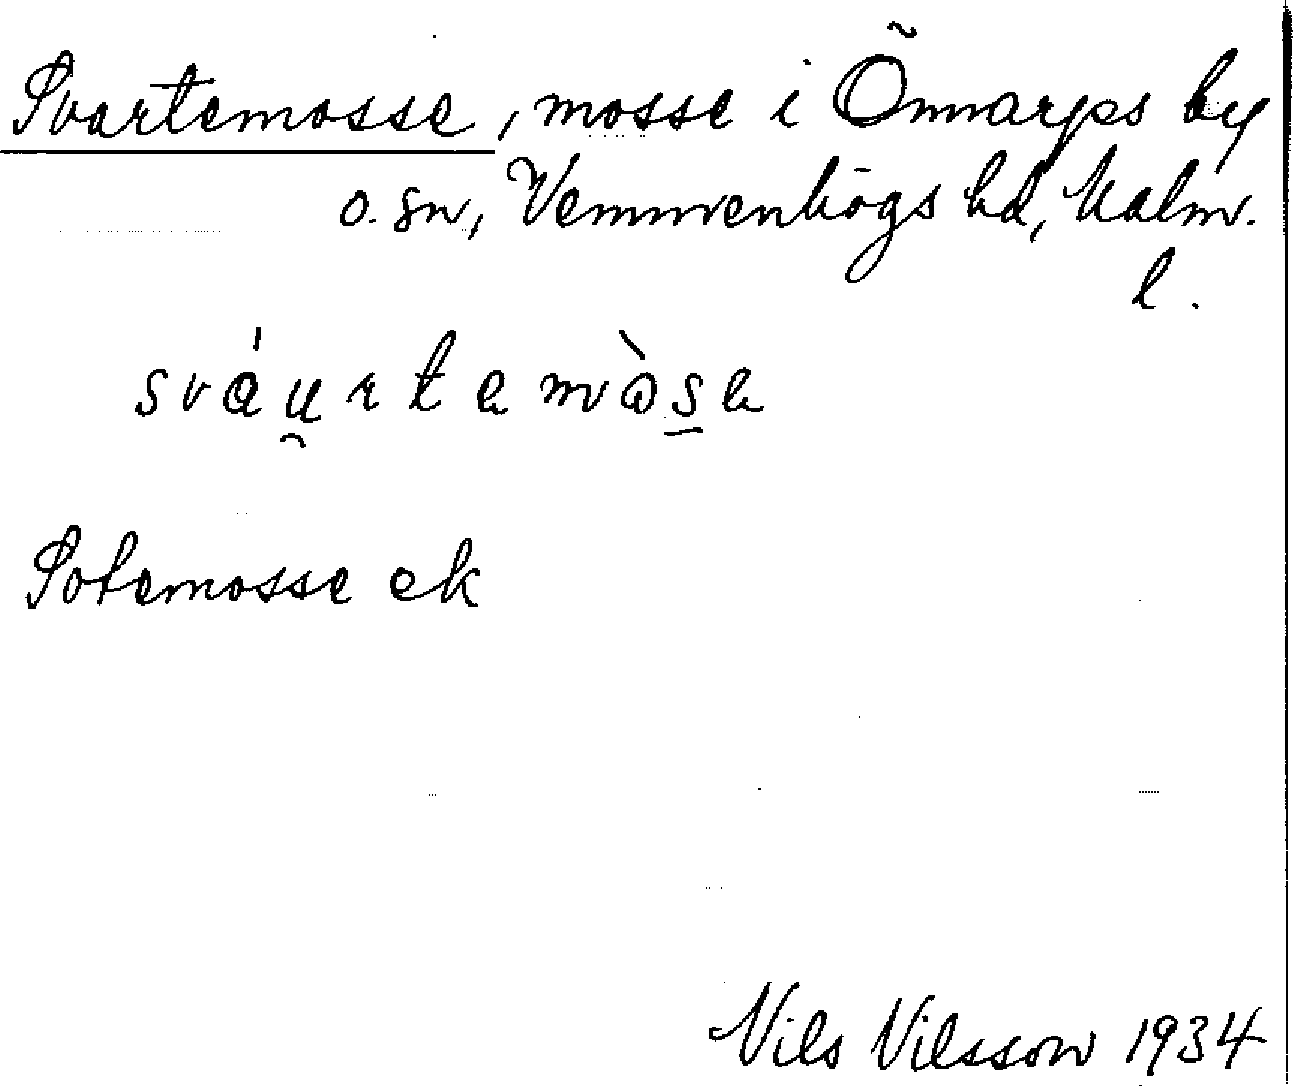 Svartemosse, mosse i Önnarps by
o. sn, Vemmenhögs hd, Malm.
l.
sváu̯rtamòs̲a
Sotemosse ek
Nils Nilsson 1934